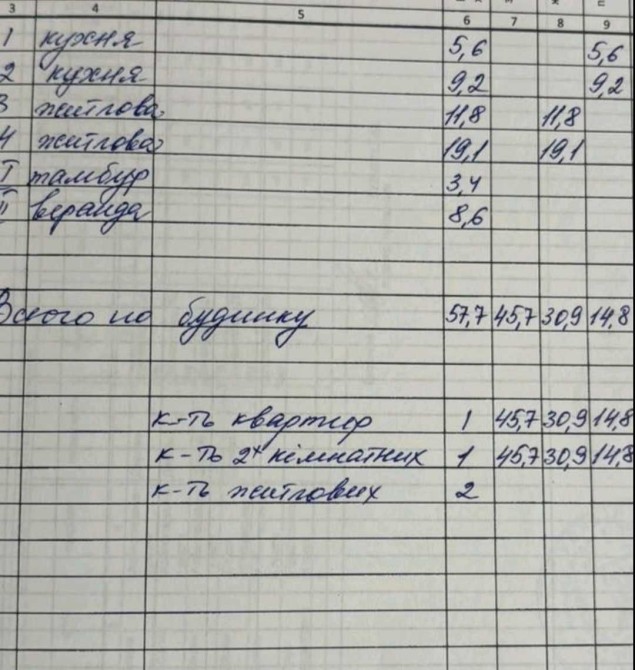 3 4 5 6 7 8 9
1 кухня 5,6 5,6
2 кухня 9,2 9,2
3 житлова 11,8 11,8
4 житлова 19,1 19,1
I тамбур 3,4
II веранда 8,6
Всього по будинку 57,7 45,7 30,9 14,8
к-ть квартир 1 45,7 30,9 14,8
к-ть 2х кімнатних 1 45,7 30,9 14,8
к-ть житлових 2